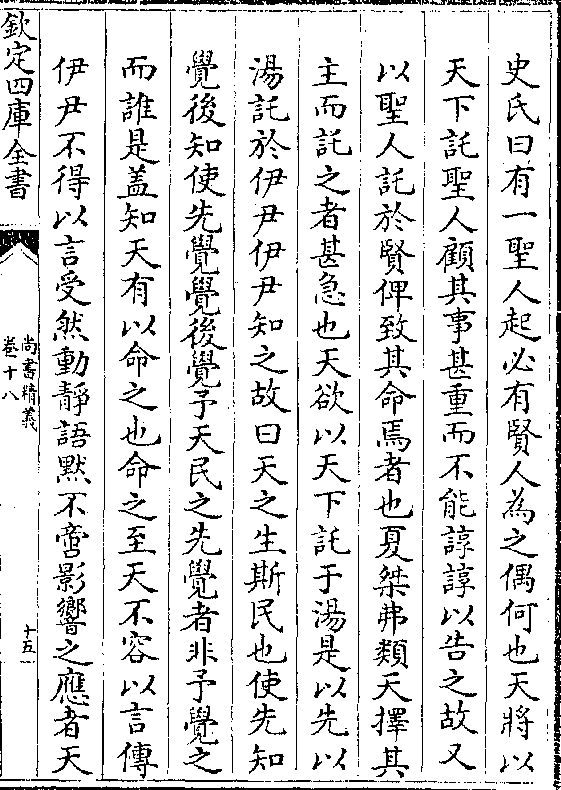 史氏曰有一聖人起必有賢人為之偶何也天將以
天下託聖人顧其事甚重而不能諄諄以告之故又
以聖人託於賢俾致其命焉者也夏桀弗類天擇其
主而託之者甚急也天欲以天下託于湯是以先以
湯託於伊尹伊尹知之故曰天之生斯民也使先知
覺後知使先覺覺後覺予天民之先覺者非予覺之
而誰是盖知天有以命之也命之至天不容以言傳
伊尹不得以言受然動靜語默不啻影響之應者天
欽定四庫全書
尚書精義
卷十八
十五